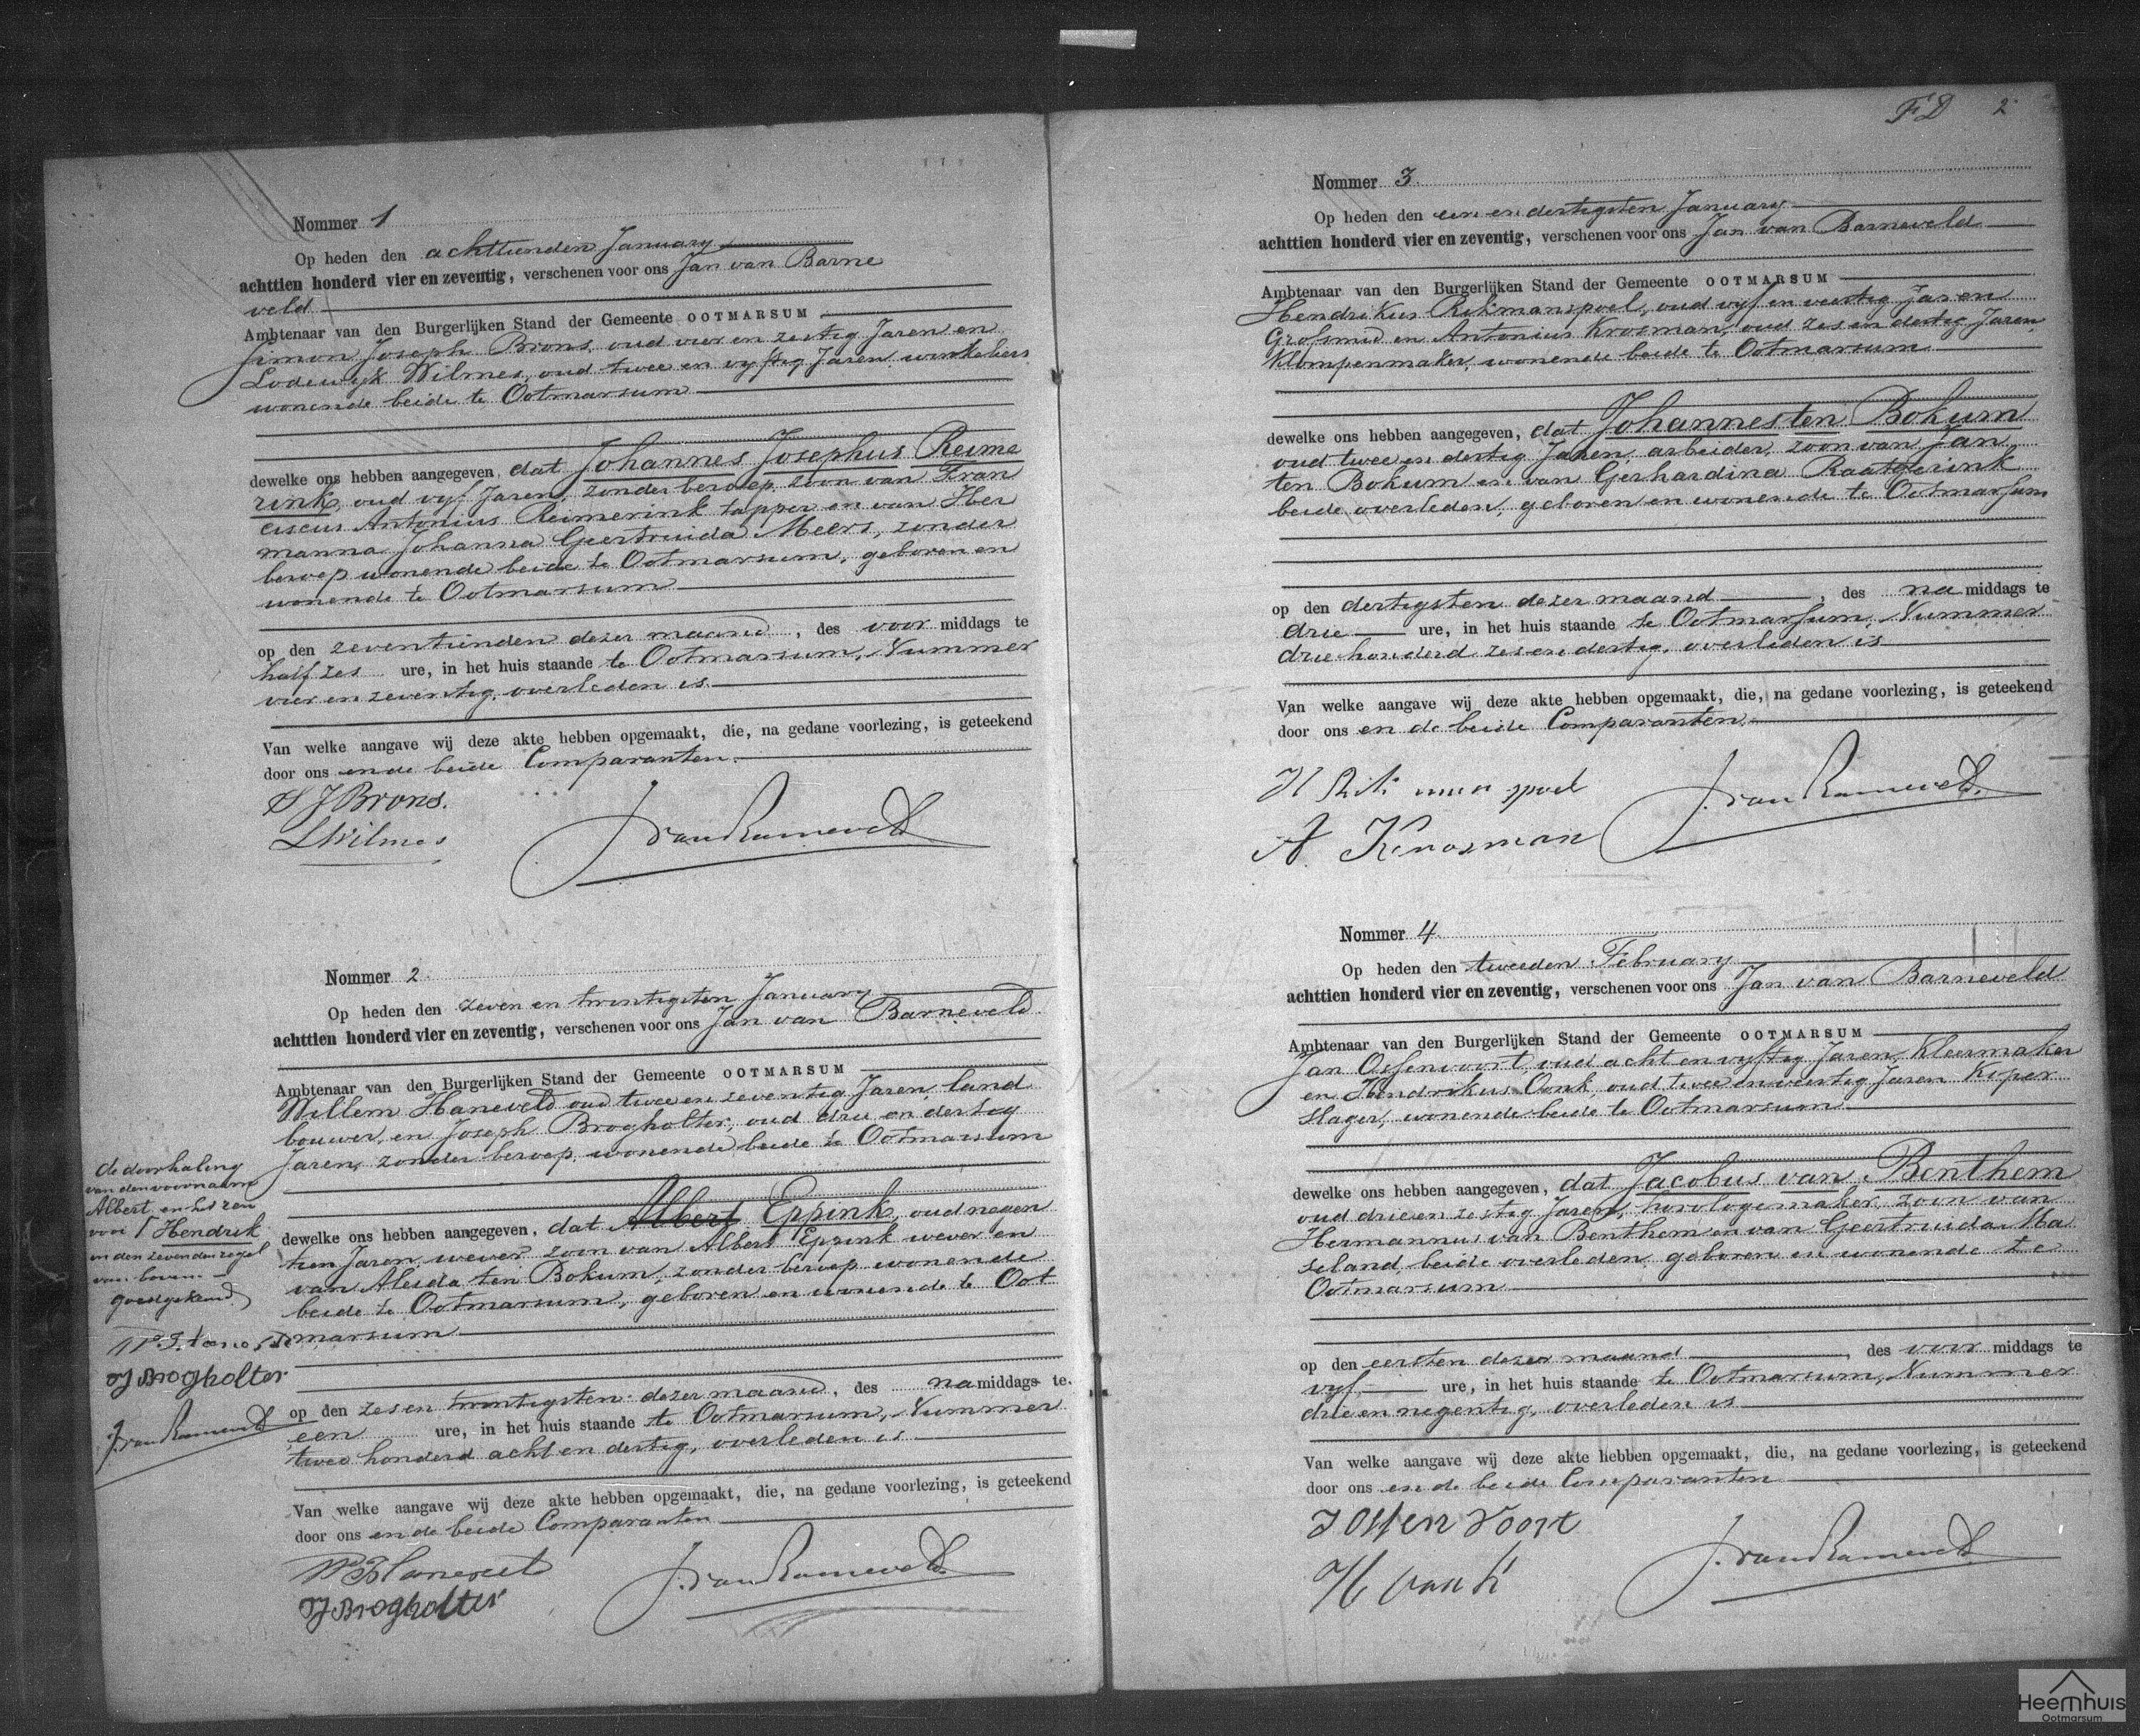 FD 2
Nommer 1
Op heden den achttienden January
achttien honderd vier en zeventig, verschenen voor ons Jan van Barne
veld
Ambtenaar van den Burgerlijken Stand der Gemeente OOTMARSUM
Simon Joseph Brons, oud vier en zestig Jaren en
Lodewyk Wilmes, oud twee en vyftig Jaren, winkeliers
wonende beide te Ootmarsum
dewelke ons hebben aangegeven, dat Johannes Josephus Reime
rink, oud vyf Jaren, zonder beroep, zoon van Fran
ciscus Antonius Reimerink tapper en van Her
manna Johanna Geertruida Meers, zonder
beroep wonende beide te Ootmarsum, geboren en
wonende te Ootmarsum
op den zeventienden dezer maand, des voor middags te
half zes ure, in het huis staande te Ootmarsum, Nummer
vier en zeventig, overleden is.
Van welke aangave wij deze akte hebben opgemaakt, die, na gedane voorlezing, is geteekend
door ons en de beide Comparanten.
S J Brons.
L Wilmes
J. van Barneveld
Nommer 2
Op heden den zeven en twintigsten January
achttien honderd vier en zeventig, verschenen voor ons Jan van Barneveld
Ambtenaar van den Burgerlijken Stand der Gemeente OOTMARSUM
Willem Haneveld oud twee en zeventig Jaren, land
bouwer, en Joseph Brogholter, oud drie en dertig
Jaren, zonder beroep, wonende beide te Ootmarsum
dewelke ons hebben aangegeven, dat Albert Eppink, oud negen
tien Jaren, wever zoon van Albert Eppink wever en
van Aleida ten Bokum, zonder beroep wonende
beide te Ootmarsum, geboren en wonende te Oot
marsum
op den zes en twintigsten dezer maand, des na middags te
een ure, in het huis staande te Ootmarsum, Nummer
twee honderd acht en dertig, overleden is
Van welke aangave wij deze akte hebben opgemaakt, die, na gedane voorlezing, is geteekend
door ons en de beide Comparanten
J Brogholter
J. van Barneveld
de doorhaling
van den voornaam
Albert en het
voor Hendrik
in den zevenden regel
van boven
goedgekeurd.
J Brogholter
J. van Barneveld
Nommer 3.
Op heden den een en dertigsten January
achttien honderd vier en zeventig, verschenen voor ons Jan van Barneveld
Ambtenaar van den Burgerlijken Stand der Gemeente OOTMARSUM
Hendrikus Rikmanspoel, oud vyf en veertig Jaren
Grofsmid en Antonius Kroesman, oud zes en dertig Jaren
Klompenmaker, wonende beide te Ootmarsum
dewelke ons hebben aangegeven, dat Johannes ten Bokum
oud twee en dertig Jaren, arbeider, zoon van Jan
ten Bokum en van Gerhardina Raatgerink
beide overleden, geboren en wonende te Ootmarsum
op den dertigsten dezer maand, des na middags te
drie ure, in het huis staande te Ootmarsum, Nummer
drie honderd zes en dertig, overleden is
Van welke aangave wij deze akte hebben opgemaakt, die, na gedane voorlezing, is geteekend
door ons en de beide Comparanten.
H Rikmanspoel
A Kroosman
J. van Barneveld.
Nommer 4
Op heden den tweeden February
achttien honderd vier en zeventig, verschenen voor ons Jan van Barneveld
Ambtenaar van den Burgerlijken Stand der Gemeente OOTMARSUM
Jan Ossenvoort, oud acht en vyftig Jaren, Kleermaker
en Hendrikus Oonk, oud twee en veertig Jaren Koper
slager, wonende beide te Ootmarsum
dewelke ons hebben aangegeven, dat Jacobus van Benthem
oud drie en zestig Jaren, horologemaker, zoon van
Hermannus van Benthem en van Geertruida Ma
seland, beide overleden, geboren en wonende te
Ootmarsum
op den eersten dezer maand, des voor middags te
vyf ure, in het huis staande te Ootmarsum, Nummer
drie en negentig, overleden is
Van welke aangave wij deze akte hebben opgemaakt, die, na gedane voorlezing, is geteekend
door ons en de beide Comparanten
J Ossenvoort
H Oonk
J. van Barneveld
Heemhuis
Ootmarsum